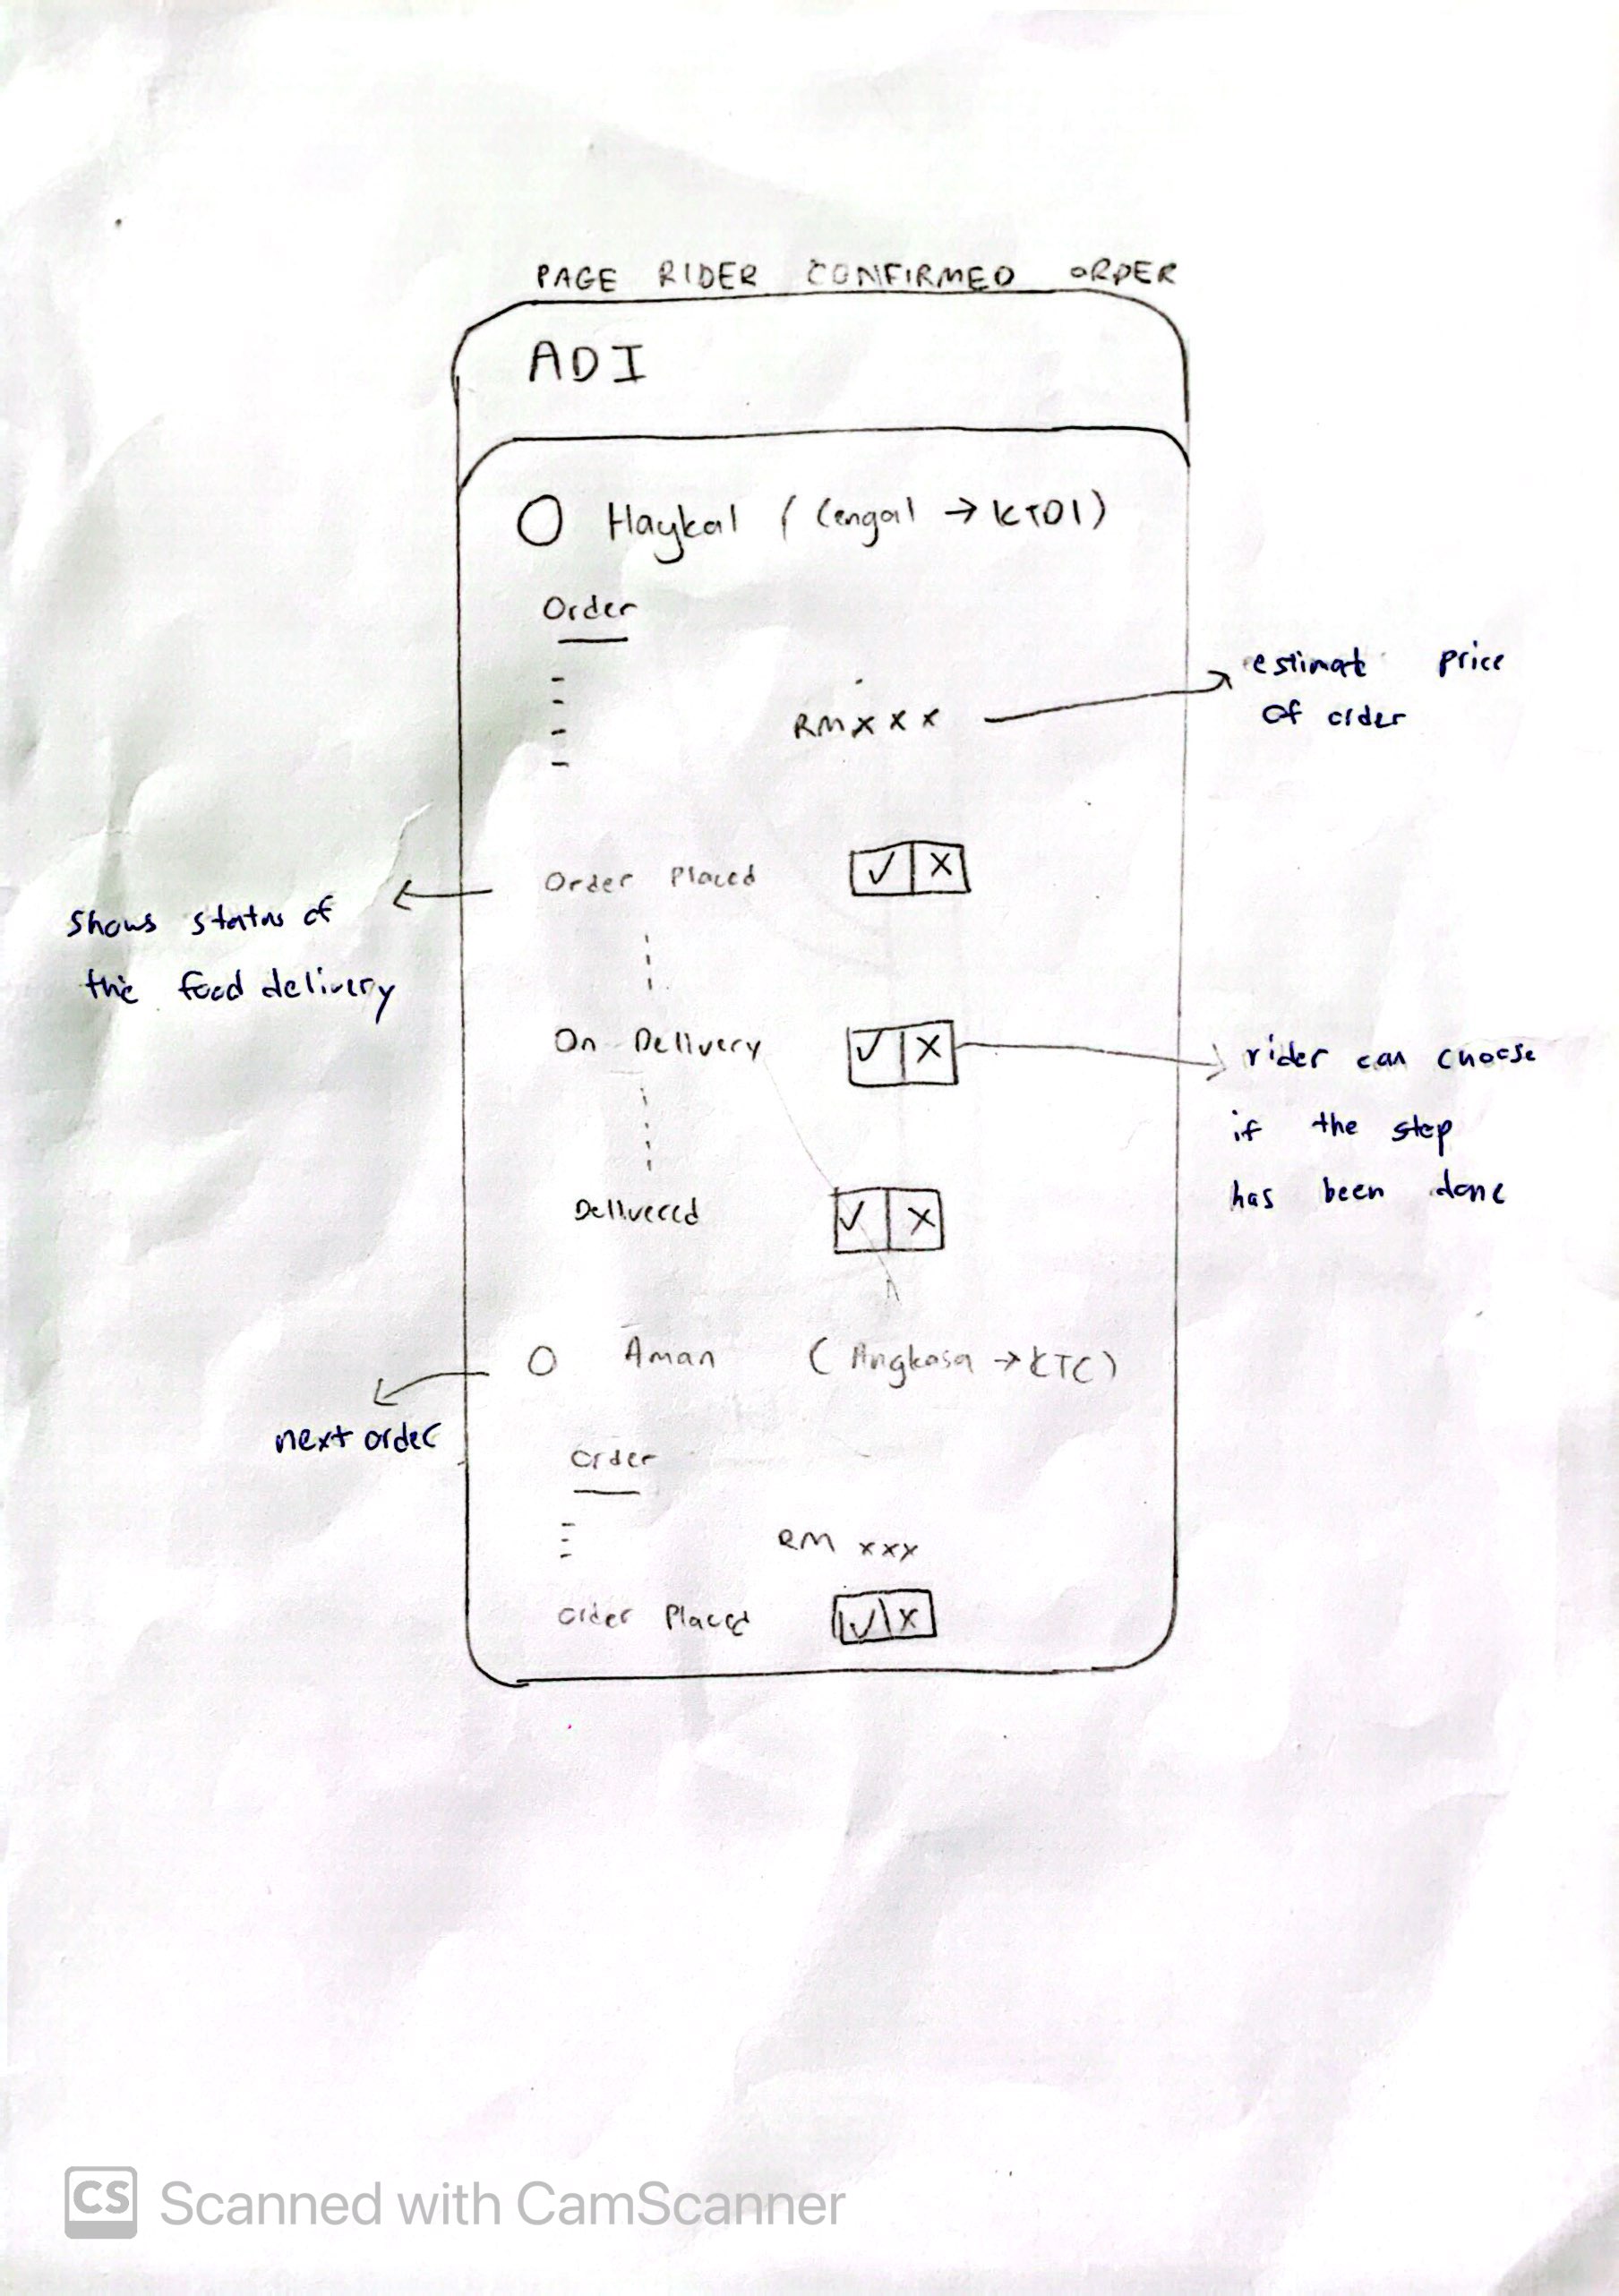 PAGE RIDER CONFIRMED ORDER
ADI
Haykal (Cengal → KTDI)
Order
RM x x x
estimate price
of order
Order Placed
✓ X
shows status of
the food delivery
On Delivery
✓ X
rider can choose
if the step
has been done
Delivered
✓ X
Aman (Angkasa → KTC)
next order
Order
RM xxx
Order Placed
✓ X
CS Scanned with CamScanner